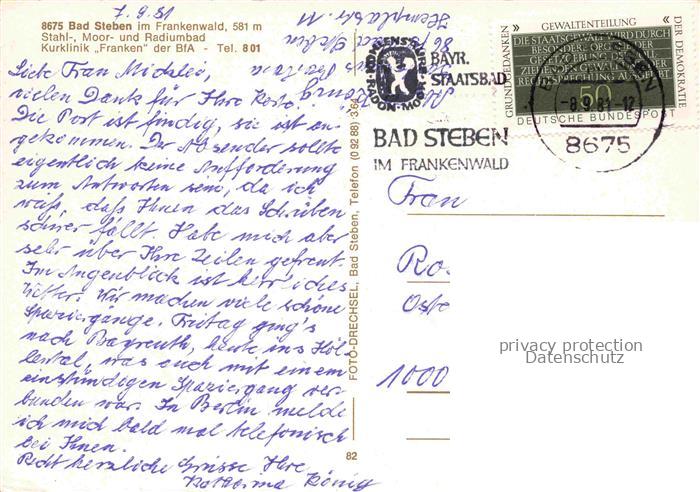 7.9.81
8675 Bad Steben im Frankenwald, 581 m
Stahl-, Moor- und Radiumbad
Kurklinik „Franken" der BfA - Tel. 8 01
Liebe Frau Michlei,
vielen Dank für Ihre Karte.
Die Post ist findig, sie ist an-
gekommen. Der Absender sollte
eigentlich keine Aufforderung
zum Antworten sein, da ich
weiß, daß Ihnen das Schreiben
schwer fällt. Habe mich aber
sehr über Ihre Zeilen gefreut.
Im Augenblick ist herrliches
Wetter. Wir machen viele schöne
Spaziergänge. Freitag ging's
nach Bayreuth, heute ins Höl-
lental, was auch mit einem
einstündigen Spaziergang ver-
bunden war. In Berlin melde
ich mich bald mal telefonisch
bei Ihnen.
Recht herzliche Grüsse Ihre
Katharina König
FOTO-DRECHSEL, Bad Steben, Telefon (0 92 88) 3 64
82
BAYR.
STAATSBAD
RADON-MOOR
BAD STEBEN
IM FRANKENWALD
GRUNDGEDANKEN
GEWALTENTEILUNG
DER DEMOKRATIE
DIE STAATSGEWALT WIRD DURCH
BESONDERE ORGANE DER
GESETZGEBUNG, DER
50
DEUTSCHE BUNDESPOST
-8.9.81-12
8675
Frau
Ro
Oste
1000
privacy protection
Datenschutz